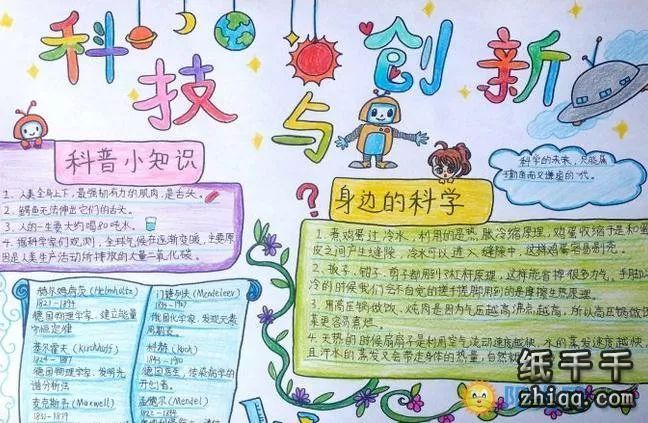 科技与创新
科普小知识
1. 人类全身上下,最强韧有力的肌肉,是舌头。
2. 鳄鱼无法伸出它们的舌头。
3. 人的一生要大约喝80吨水。
4. 据科学家们观测,全球气候在逐渐变暖,主要原
因是人类生产活动所排放的大量二氧化碳。
科学的未来,只能属
于勤奋而又谦虚的一代。
?
身边的科学
1. 煮鸡蛋过冷水,利用的是热胀冷缩原理,鸡蛋收缩于是和蛋
皮之间产生缝隙,冷水可以进入缝隙中,这样鸡蛋容易剥壳。
2. 扳子、钳子、剪子都用到杠杆原理,这样能省掉很多力气,手脚
冷的时候我们会不自觉的搓手搓脚用到的是摩擦生热原理。
3. 用高压锅做饭、炖肉是因为气压越高沸点越高,所以高压锅做饭
菜更容易煮烂。
4. 天热的时候扇扇子是利用空气流动速度越快,水的蒸发速度越快,
且汗水的蒸发又会带走身体的热量,自然就
赫尔姆荷茨 (Helmholtz)
1821-1894
德国物理学家,建立能量
守恒定律
基尔霍夫 (Kirchhoff)
1824-1887
德国物理学家,发明光
谱分析法
麦克斯韦 (Maxwell)
1831-1879
门捷列夫 (Mendeleer)
1834-1907
俄国化学家、发现元素
周期表
柯赫 (Koch)
1843-1910
德国医生,传染病学的
开创者。
孟德尔 (Mendel)
1822-1884
纸千千
zhiqq.com